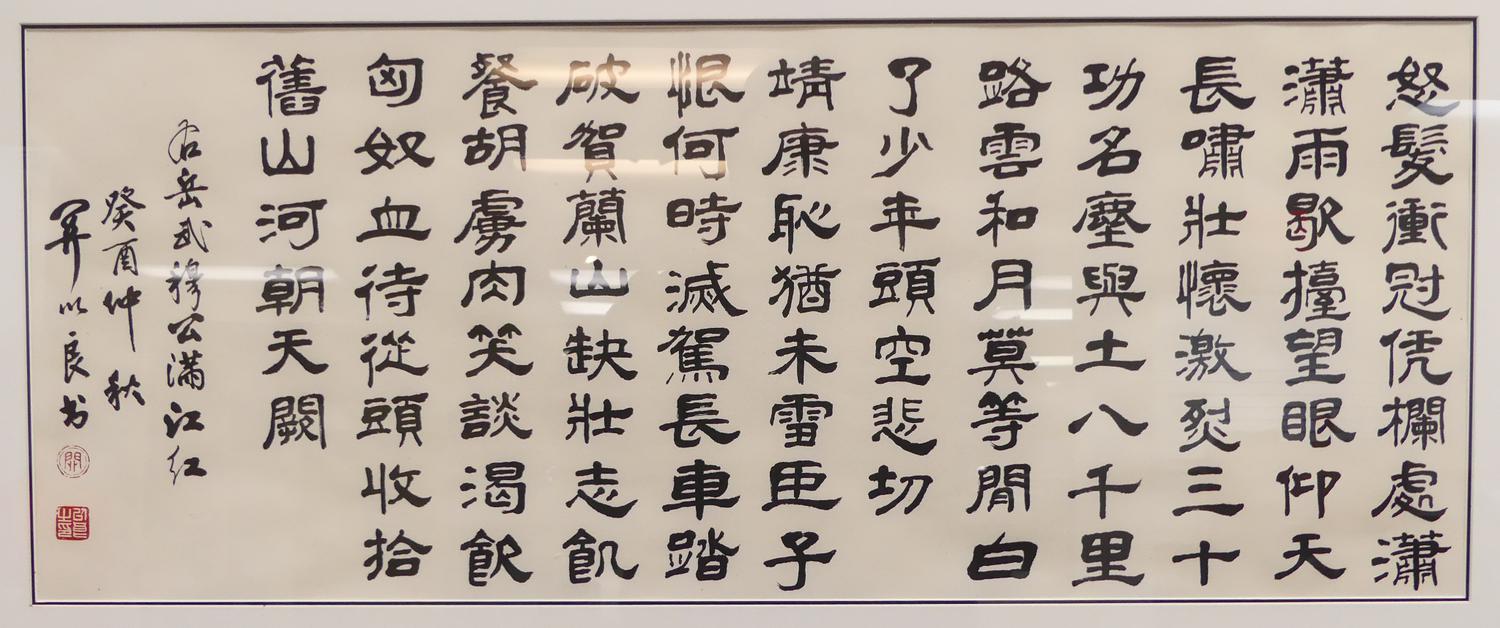 怒髮衝冠凭欄處瀟
瀟雨歇擡望眼仰天
長嘯壯懷激烈三十
功名塵與土八千里
路雲和月莫等閒白
了少年頭空悲切
靖康恥猶未雪臣子
恨何時滅駕長車踏
破賀蘭山缺壯志飢
餐胡虜肉笑談渴飲
匈奴血待從頭收拾
舊山河朝天闕
右岳武穆公满江红
癸酉仲秋
開以良书
開